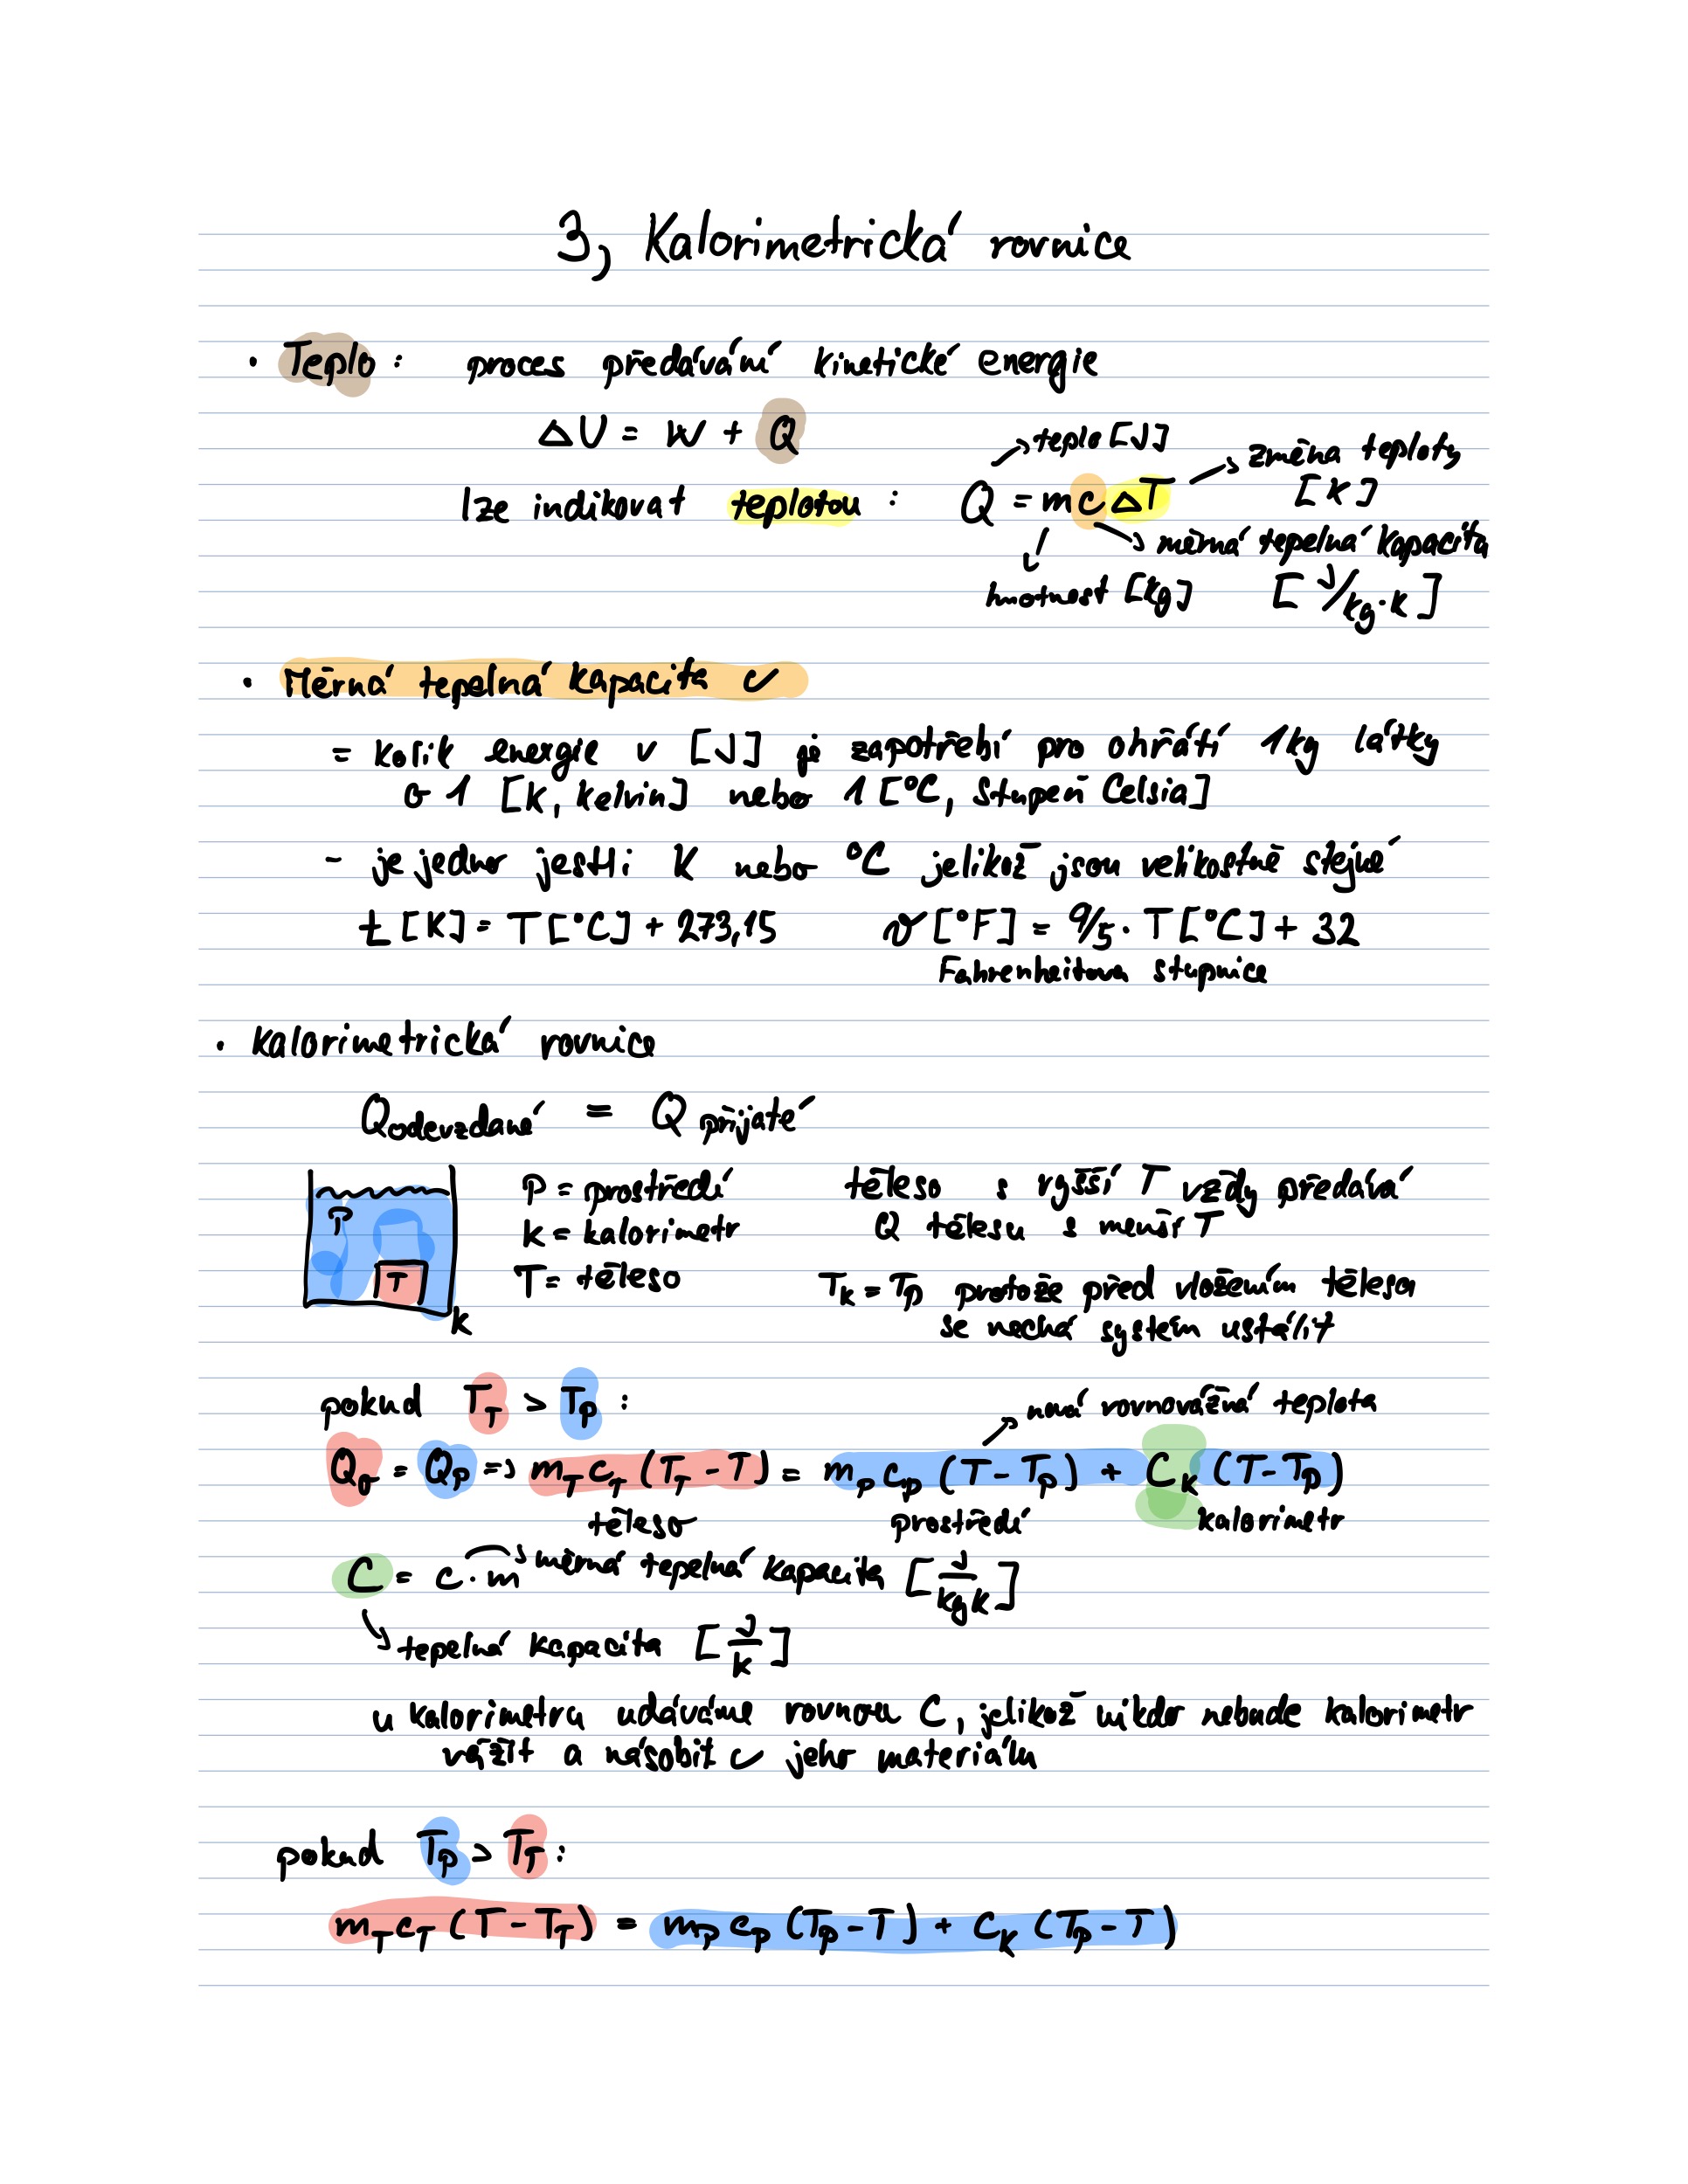 3, Kalorimetrická rovnice
• Teplo: proces předávání kinetické energie
ΔU = W + Q
lze indikovat teplotou : Q = mcΔT
teplo [J]
změna teploty
[K]
měrná tepelná kapacita
[J/kg·K]
hmotnost [kg]
• Měrná tepelná kapacita c
= kolik energie v [J] je zapotřebí pro ohřátí 1kg látky
o 1 [K, kelvin] nebo 1 [°C, stupeň Celsia]
- je jedno jestli K nebo °C jelikož jsou velikostně stejné
t [K] = T [°C] + 273,15 ϑ [°F] = 9/5 · T [°C] + 32
Fahrenheitova stupnice
• Kalorimetrická rovnice
Qodevzdané = Q přijaté
P
T
K
P = prostředí
K = kalorimetr
T = těleso
těleso s vyšší T vždy předává
Q tělesu s menší T
TK = Tp protože před vložením tělesa
se nechá systém ustálit
pokud TT > Tp :
nová rovnovážná teplota
Qo = Qp => mT cT (TT - T) = mp cp (T - Tp) + CK (T - Tp)
těleso prostředí kalorimetr
C = c · m měrná tepelná kapacita [J/kgK]
tepelná kapacita [J/K]
u kalorimetru udáváme rovnou C, jelikož nikdo nebude kalorimetr
vážit a násobit c jeho materiálu
pokud Tp > TT :
mT cT (T - TT) = mp cp (Tp - T) + CK (Tp - T)